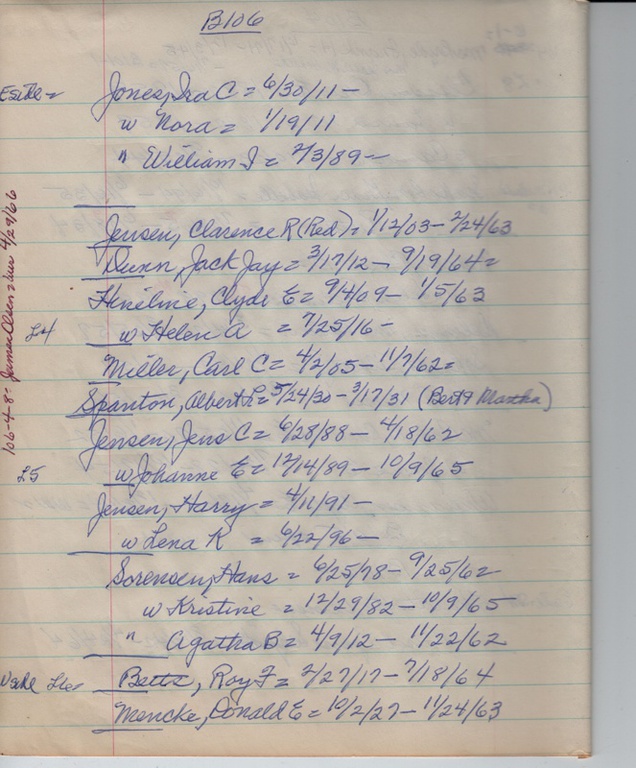 B106
Jones, Ira C = 6/30/11 —
w Nora = 1/19/11
" William I = 2/3/89 —
Jensen, Clarence R (Red) = 1/12/03 — 2/24/63
Dunn, Jack Jay = 3/17/12 — 9/19/64 =
Hineline, Clyde E = 9/4/09 — 1/5/63
L4 w Helen A = 7/25/16 —
Miller, Carl C = 4/2/05 — 11/7/62 =
Spanton, Albert L = 5/24/30 — 3/17/31 (Bert & Martha)
Jensen, Jens C = 6/28/88 — 4/18/62
L5 w Johanne E = 12/14/89 — 10/9/65
Jensen, Harry = 4/11/91 —
w Lena K = 6/22/96 —
Sorensen, Hans = 6/25/78 — 9/25/62
w Kristine = 12/29/82 — 10/9/65
" Agatha B = 4/9/12 — 11/22/62
Betts, Roy F = 2/27/17 — 7/18/64
Mencke, Donald E = 10/2/27 — 11/24/63
106-4-8 = Olsen 4/29/66